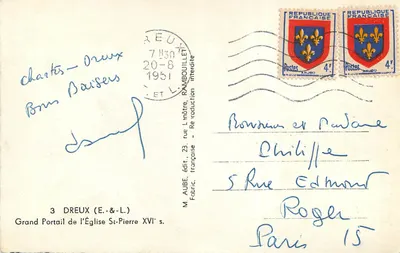 chartres - Dreux
Bons Baisers
3 DREUX (E.-&-L.)
Grand Portail de l'Église St-Pierre XVIᵉ s.
M. AUBÉ, édit., 23, rue Lhâtre, RAMBOUILLET
Fabric. française - Reproduction interdite
DREUX
7H30
20-6
1951
E. ET L.
REPUBLIQUE FRANÇAISE
Postes
4F
REPUBLIQUE FRANÇAISE
Postes
4F
Monsieur et Madame
Philippe
5 Rue Edmond
Roger
Paris 15